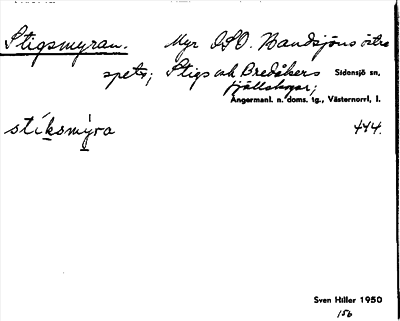 Stigsmyran. Myr OSO. Bandsjöns östra
spets; Stigs och Bredåkers Sidensjö sn,
fjällskogar;
Ångermanl. n. doms. tg., Västernorrl. l.
stíksmýra 444.
Sven Hiller 1950
156